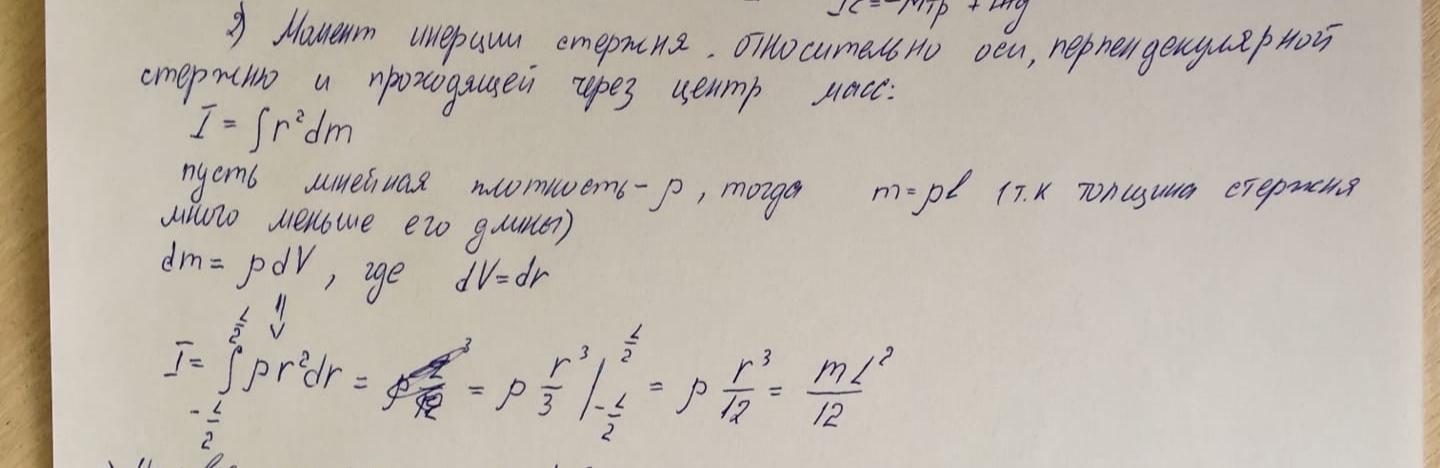 Ic = -Mтр + mg
2) Момент инерции стержня. относительно оси, перпендекулярной
стержню и проходящей через центр масс:
I = ∫r²dm
пусть линейная плотность - ρ, тогда m = ρl (т.к толщина стержня
много меньше его длины)
dm = ρdV, где dV = dr
⇓
I = ∫_{-L/2}^{L/2} ρr²dr = = ρ r³/3 |_{-L/2}^{L/2} = ρ r³/12 = mL²/12